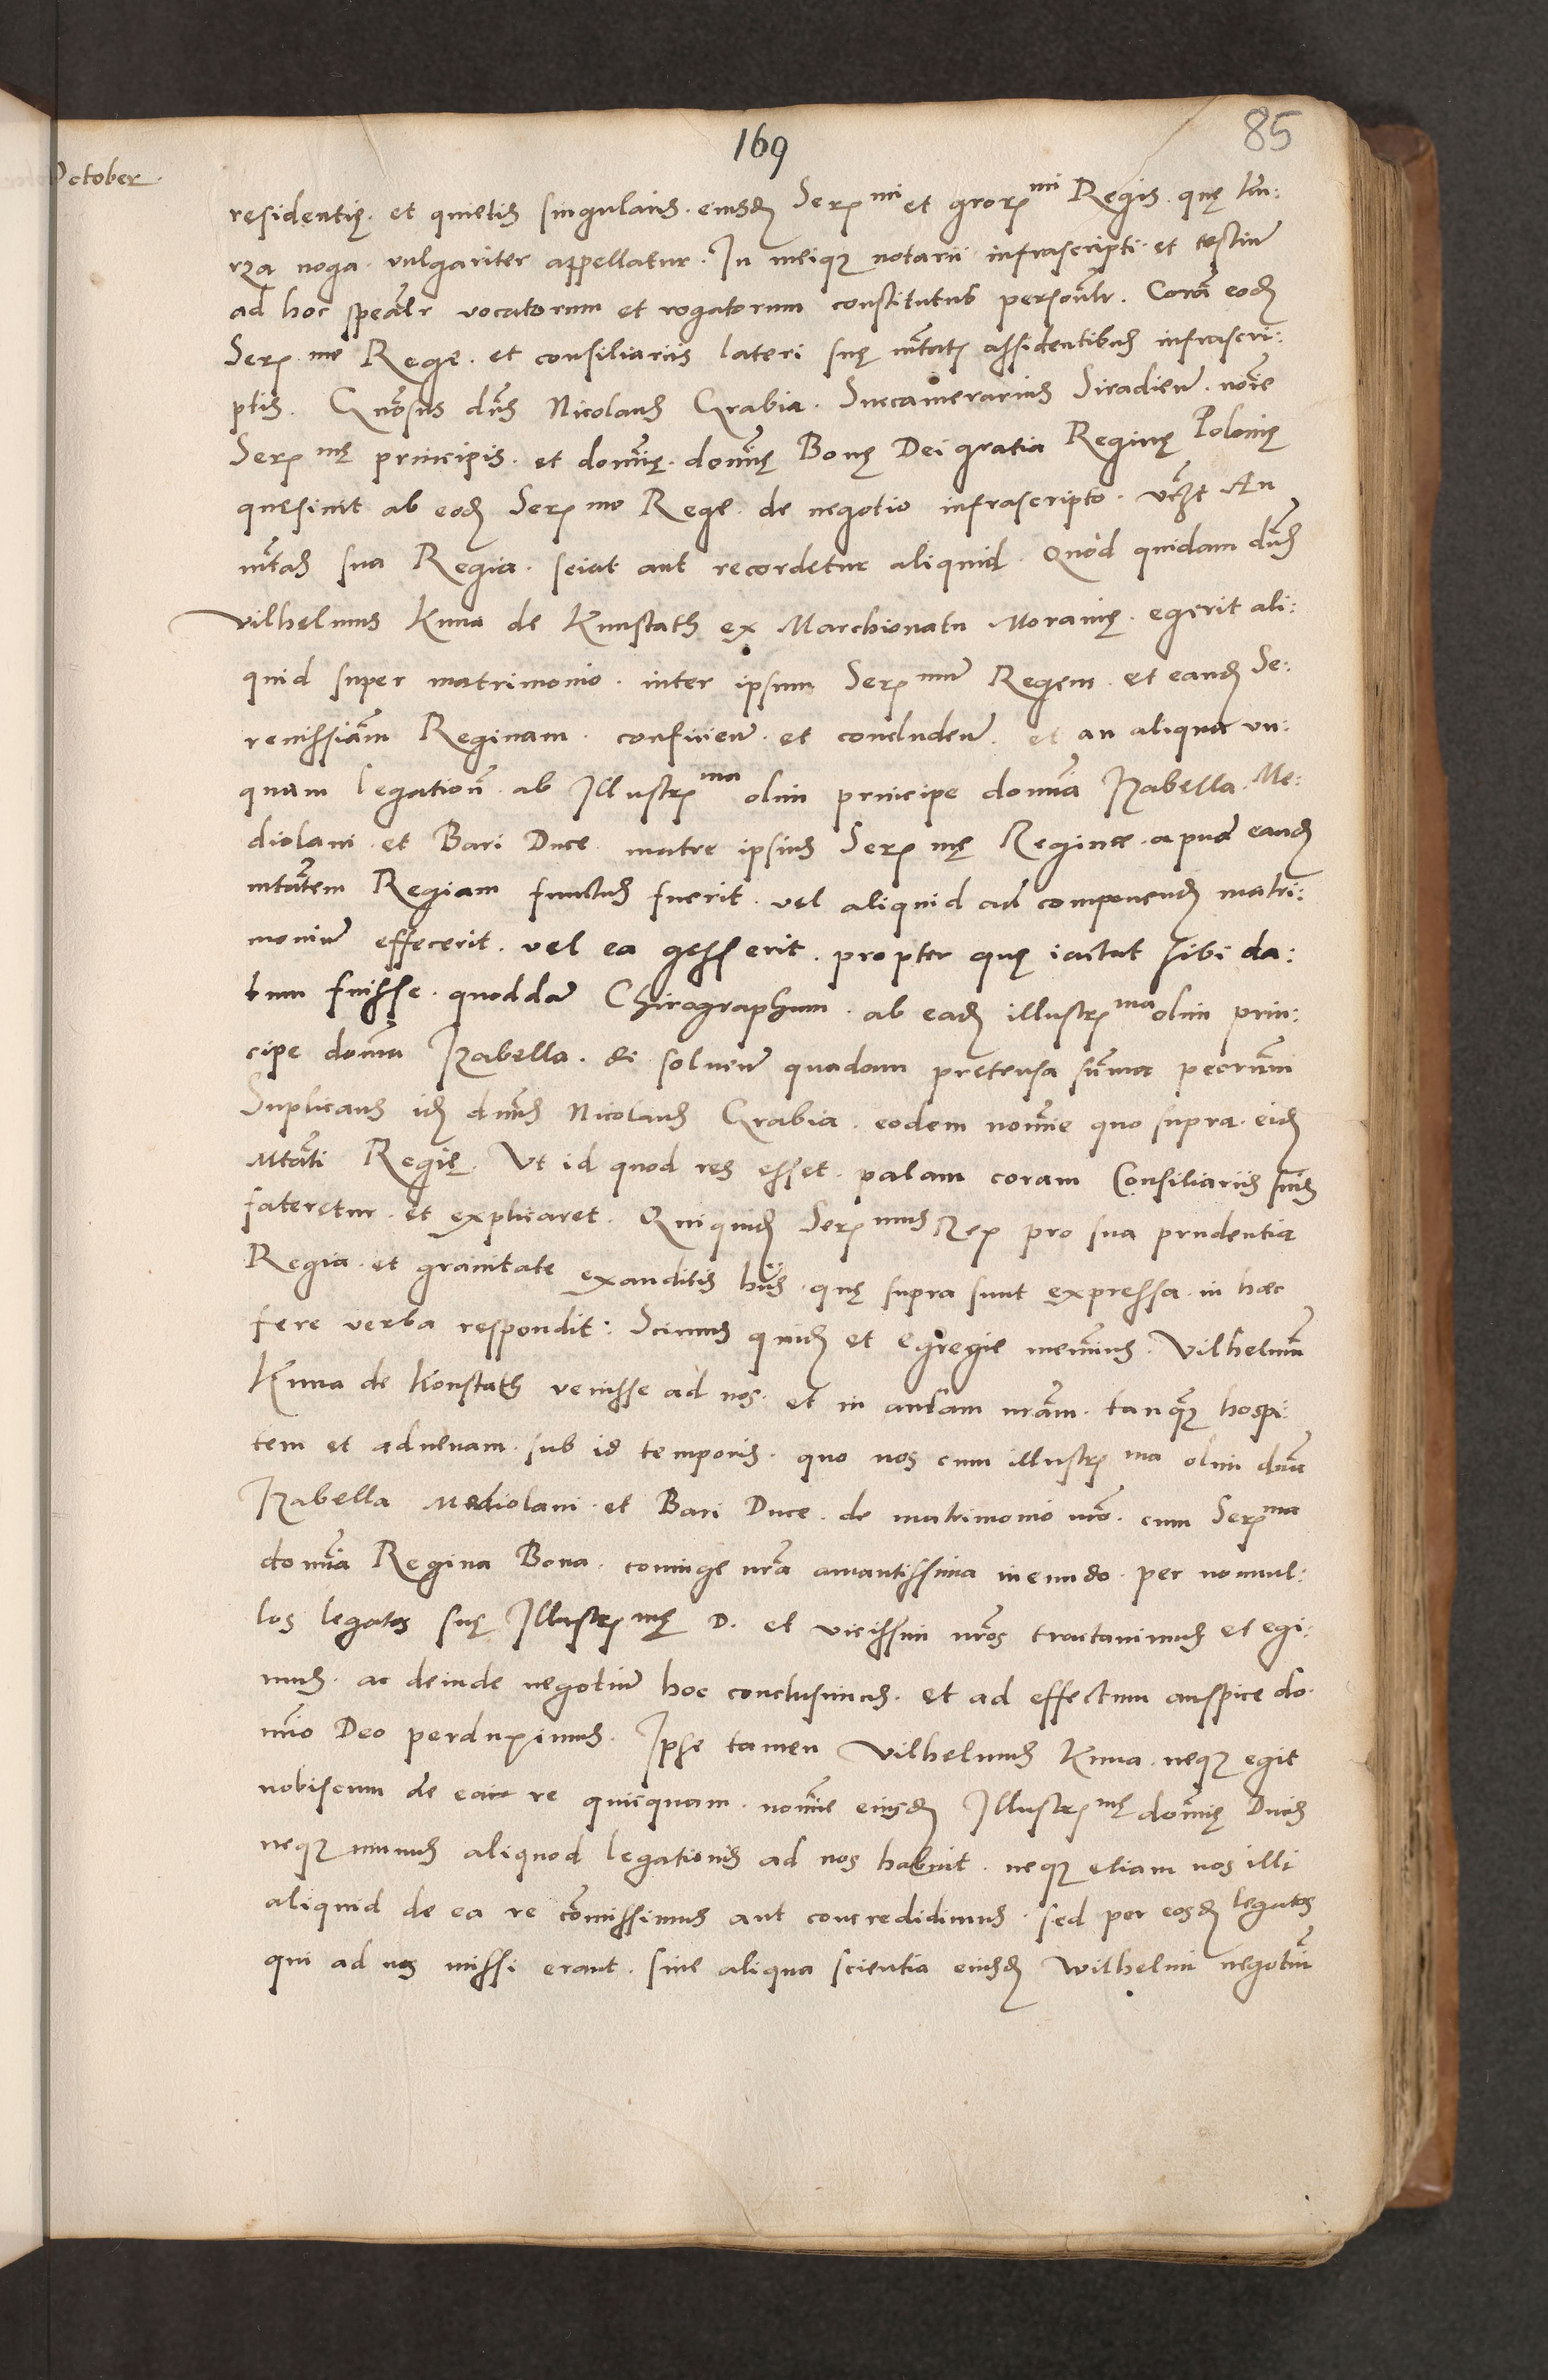 169
85
October.
residentię. et quietis singularis. eiusdꝫ Serꝫ mi et grorꝫ mi Regis. quę ku:
rza noga. vulgariter appellatur. In meiqꝫ notarii infrascripti. et testiũ
ad hoc spẽalr vocatorum et rogatorum constitutus persoñlr. Corã eodꝫ
Serꝫ. mo Rege. et consiliariis lateri suę mtatꝫ assidentibus infrascri:
ptis. Gñosus dñs Nicolaus Grabia. Succamerarius Siradieñ. noĩe
Serꝫ mę principis. et domĩę. domĩę Bonę Dei gratia Reginę Polonię
quesiuit ab eodꝫ Serꝫ mo Rege. de negotio infrascripto. vcꝫt An
mtas sua Regia. sciat aut recordetur aliquid. Quod quidam dñs
Vilhelmus Kuna de Kunstath ex Marchionatu Morauię. egerit ali:
quid super matrimonio. inter ipsum Serꝫ mũ Regem. et eandꝫ Se:
renissiãm Reginam. conficieñ. et concludeñ. et an aliqua vn:
quam legatioñ. ab Illustrꝫ ma olim principe domĩa Izabella. Me:
diolani. et Bari Duce. matre ipsius Serꝫ mę Reginae. apud eandꝫ
mtatem Regiam functus fuerit. vel aliquid ad componendꝫ matri:
moniũ effecerit. vel ea gesserit. propter quę iactat sibi da:
tum fuisse. quoddã Chirographum. ab eadꝫ illustrꝫ ma olim prin:
cipe domĩa Izabella. de solueñ quadam pretensa sũma pecuñm
Suplicans idꝫ dmñs Nicolaus Grabia. eodem nomĩe quo supra. eidꝫ
Mtati Regię. Vt id quod res esset. palam coram Consiliariis suis
fateretur. et explicaret. Quiquidꝫ Serꝫ mus Rex pro sua prudentia
Regia. et grauitate exauditis hiis. quę supra sunt expressa. in haec
fere verba respondit: Scimus quidꝫ et egregie memĩmus. Vilhelmũ
Kuna de Konstath venisse ad nos. et in aulam nrãm. tanqꝫ hospi:
tem et aduenam. sub id temporis. quo nos cum illustrꝫ ma olim dña
Izabella Mediolani. et Bari Duce. de matrimonio nrõ. cum Serꝫ ma
domĩa Regina Bona. coniuge nrã amantissima ineundo. per nonnul:
los legatos suę Illustrꝫ mę D. et vicissim nrõs tractauimus et egi:
mus. ac deinde negotiũ hoc conclusimus. et ad effectum auspice do:
mĩo Deo perduximus. Ipse tamen Vilhelmus Kuna. neqꝫ egit
nobiscum de ea re quicquam. nomĩe eiusdꝫ Illustrꝫ mę domĩę Ducis
neqꝫ munus aliquod legationis ad nos habuit. neqꝫ etiam nos illi
aliquid de ea re cõmissimus aut concredidimus. sed per eosdꝫ legatos
qui ad nos missi erant. sine aliqua scientia eiusdꝫ Wilhelmi negotiũ